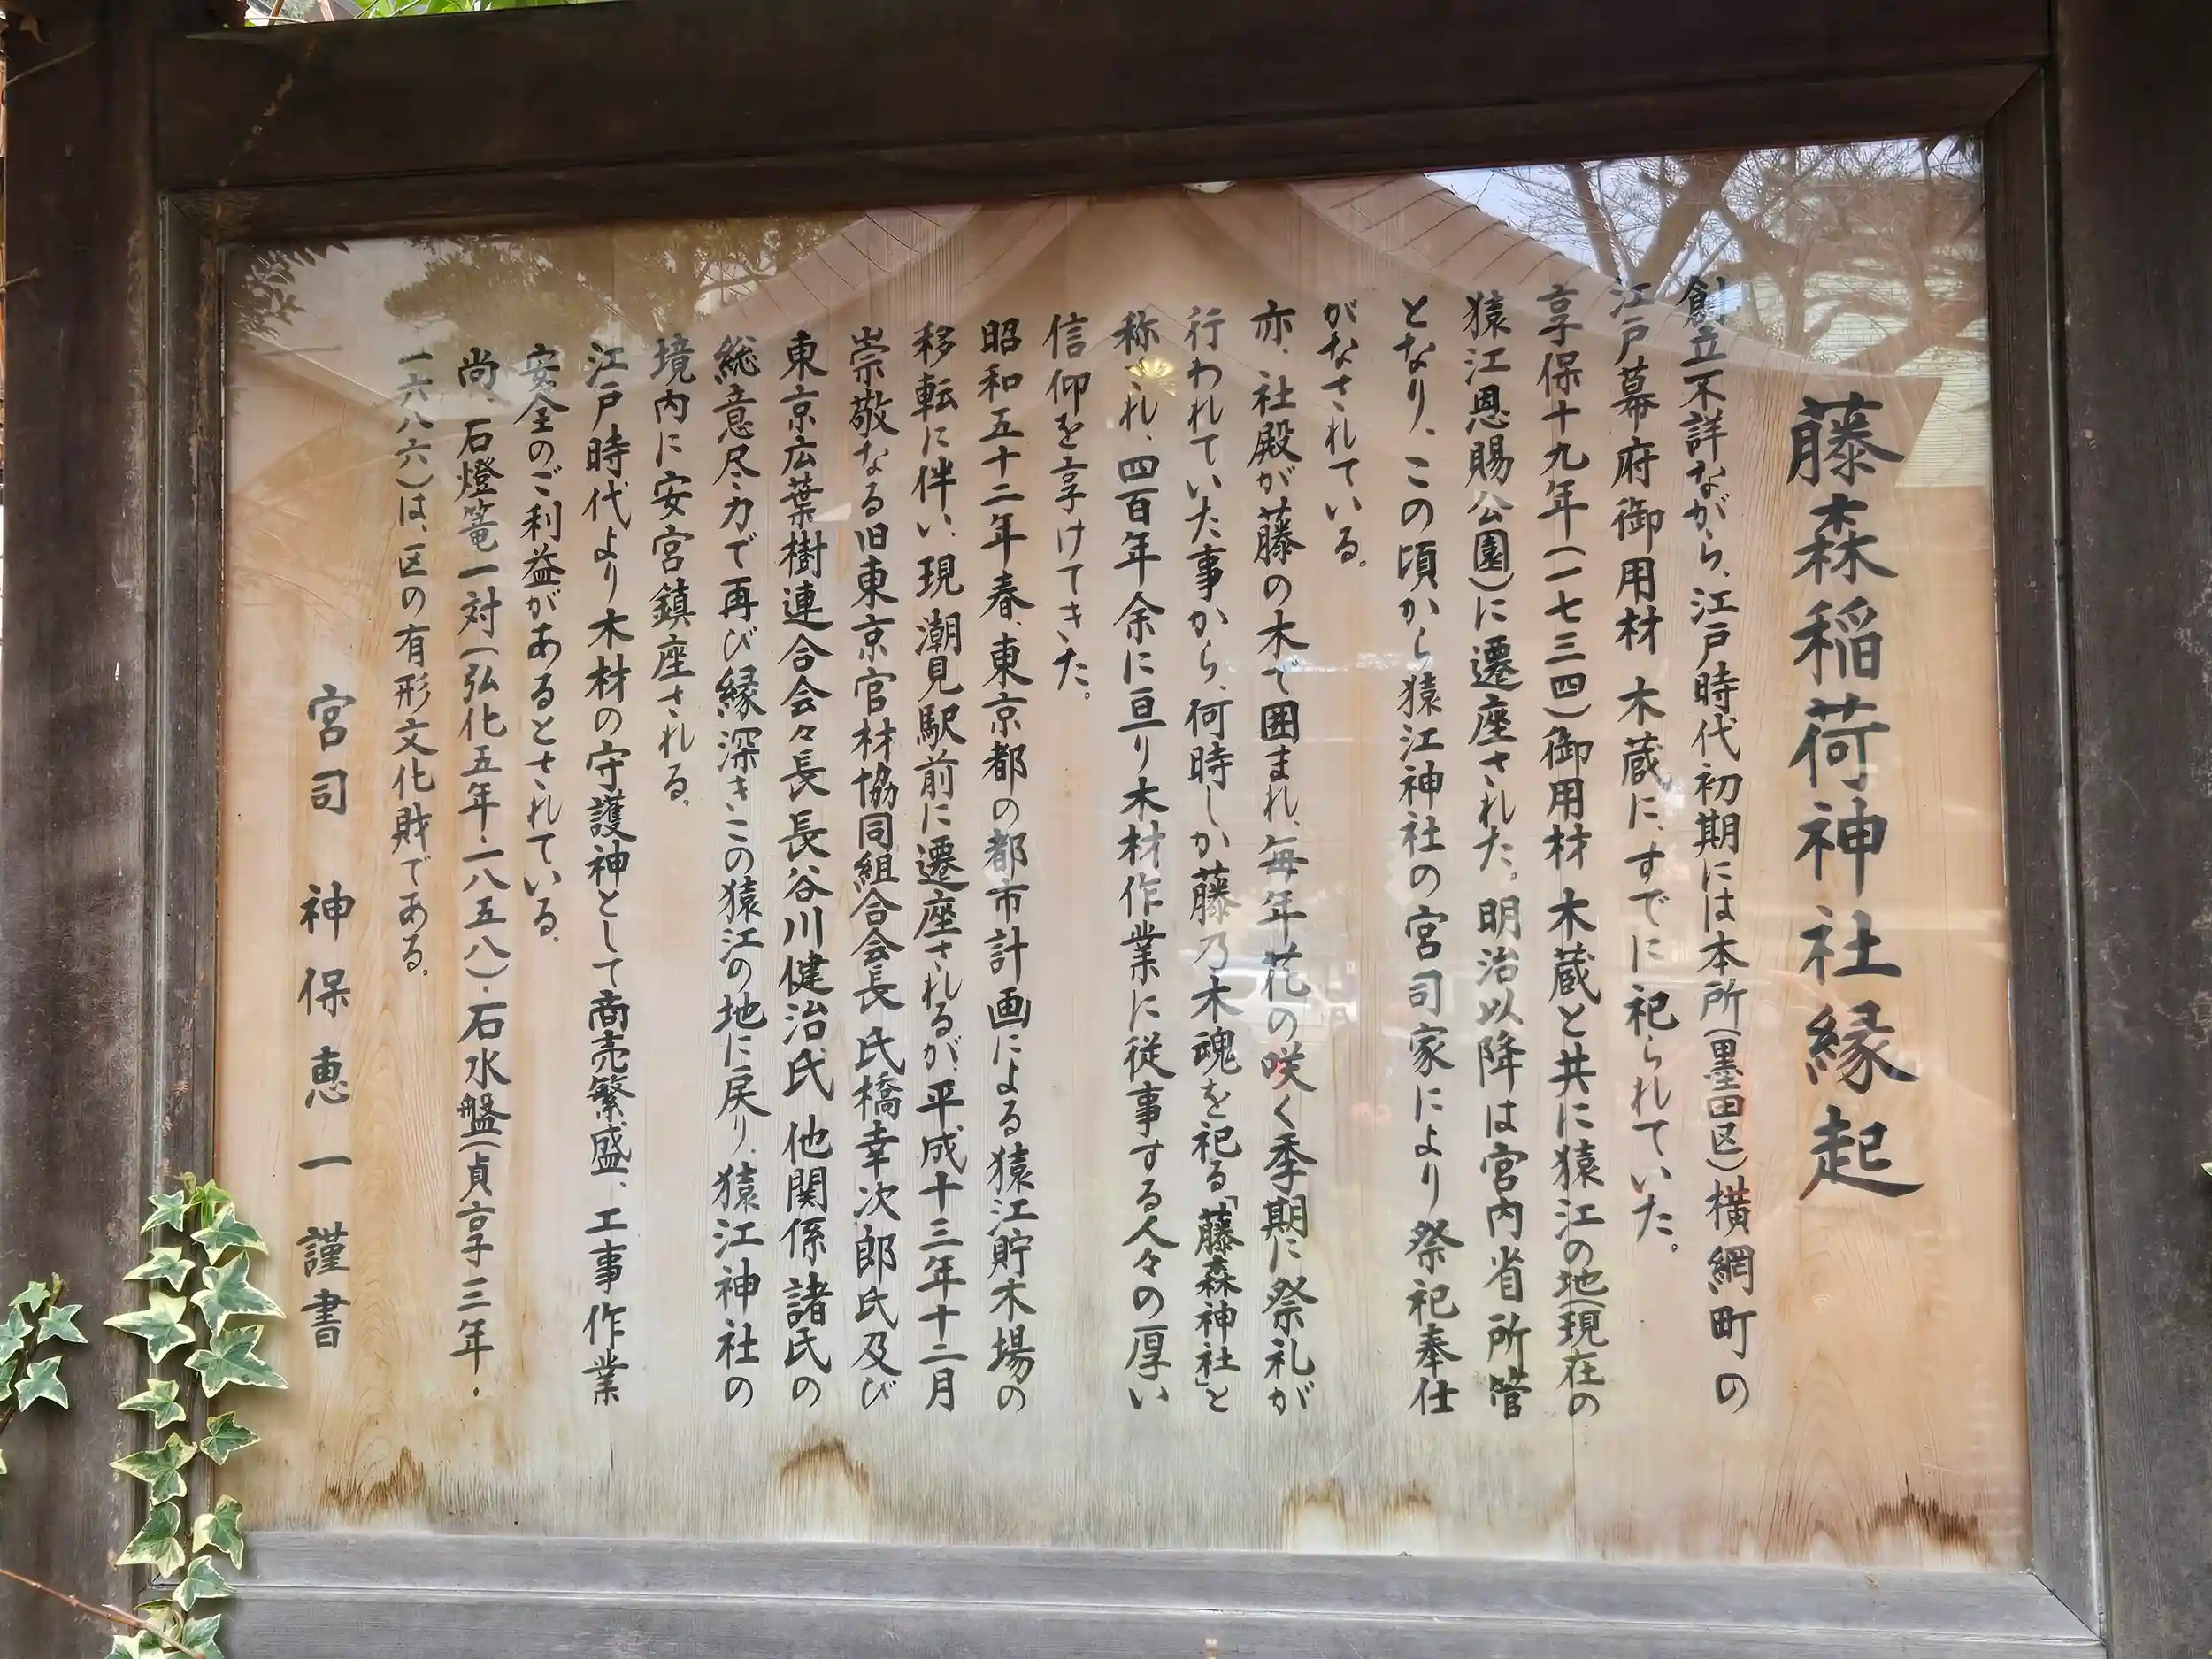 藤森稲荷神社縁起
創立不詳ながら、江戸時代初期には本所(墨田区)横網町の
江戸幕府御用材木蔵に、すでに祀られていた。
享保十九年(一七三四)御用材木蔵と共に猿江の地(現在の
猿江恩賜公園)に遷座された。明治以降は宮内省所管
となり、この頃から猿江神社の宮司家により祭祀奉仕
がなされている。
亦、社殿が藤の木で囲まれ、毎年花の咲く季期に祭礼が
行われていた事から、何時しか藤乃木魂を祀る「藤森神社」と
称され、四百年余に亘り木材作業に従事する人々の厚い
信仰を享けてきた。
昭和五十二年春、東京都の都市計画による猿江貯木場の
移転に伴い、現潮見駅前に遷座されるが、平成十三年十二月
崇敬なる旧東京官材協同組合会長氏橋幸次郎氏及び
東京広葉樹連合会々長長谷川健治氏他関係諸氏の
総意尽力で再び縁深きこの猿江の地に戻り、猿江神社の
境内に安宮鎮座される。
江戸時代より木材の守護神として商売繁盛、工事作業
安全のご利益があるとされている。
尚、石燈篭一対(弘化五年・一八五八)・石水盤(貞享三年・
一六八六)は、区の有形文化財である。
宮司 神保恵一謹書